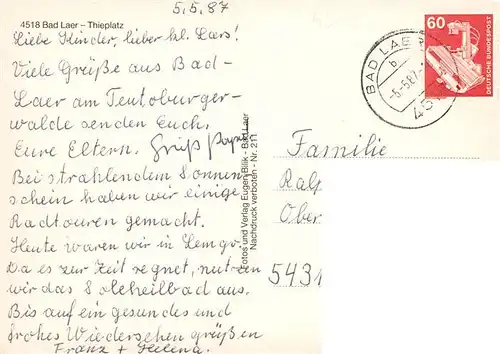 5.5.87
4518 Bad Laer – Thieplatz
Liebe Kinder, lieber kl. Lars!
Viele Grüße aus Bad-
Laer am Teutoburger-
walde senden Euch,
Eure Eltern. Gruß Papa
Bei strahlendem Sonnen
schein haben wir einige
Radtouren gemacht.
Heute waren wir in Lemgo.
Da es zur Zeit regnet, nutzen
wir das Soleheilbad aus.
Bis auf ein gesundes und
frohes Wiedersehen grüßen
Franz + Helena.
Fotos und Verlag Eugen Blik - Bad Laer
Nachdruck verboten - Nr. 211
BAD LAE
b
-5.-5.87-
451
60
DEUTSCHE BUNDESPOST
Familie
Ralp
Ober
5431